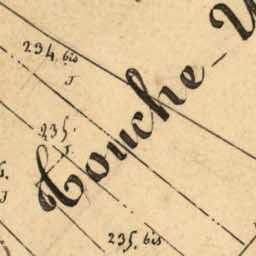 234. bis
J
235.
J.
Touche
235. bis
J